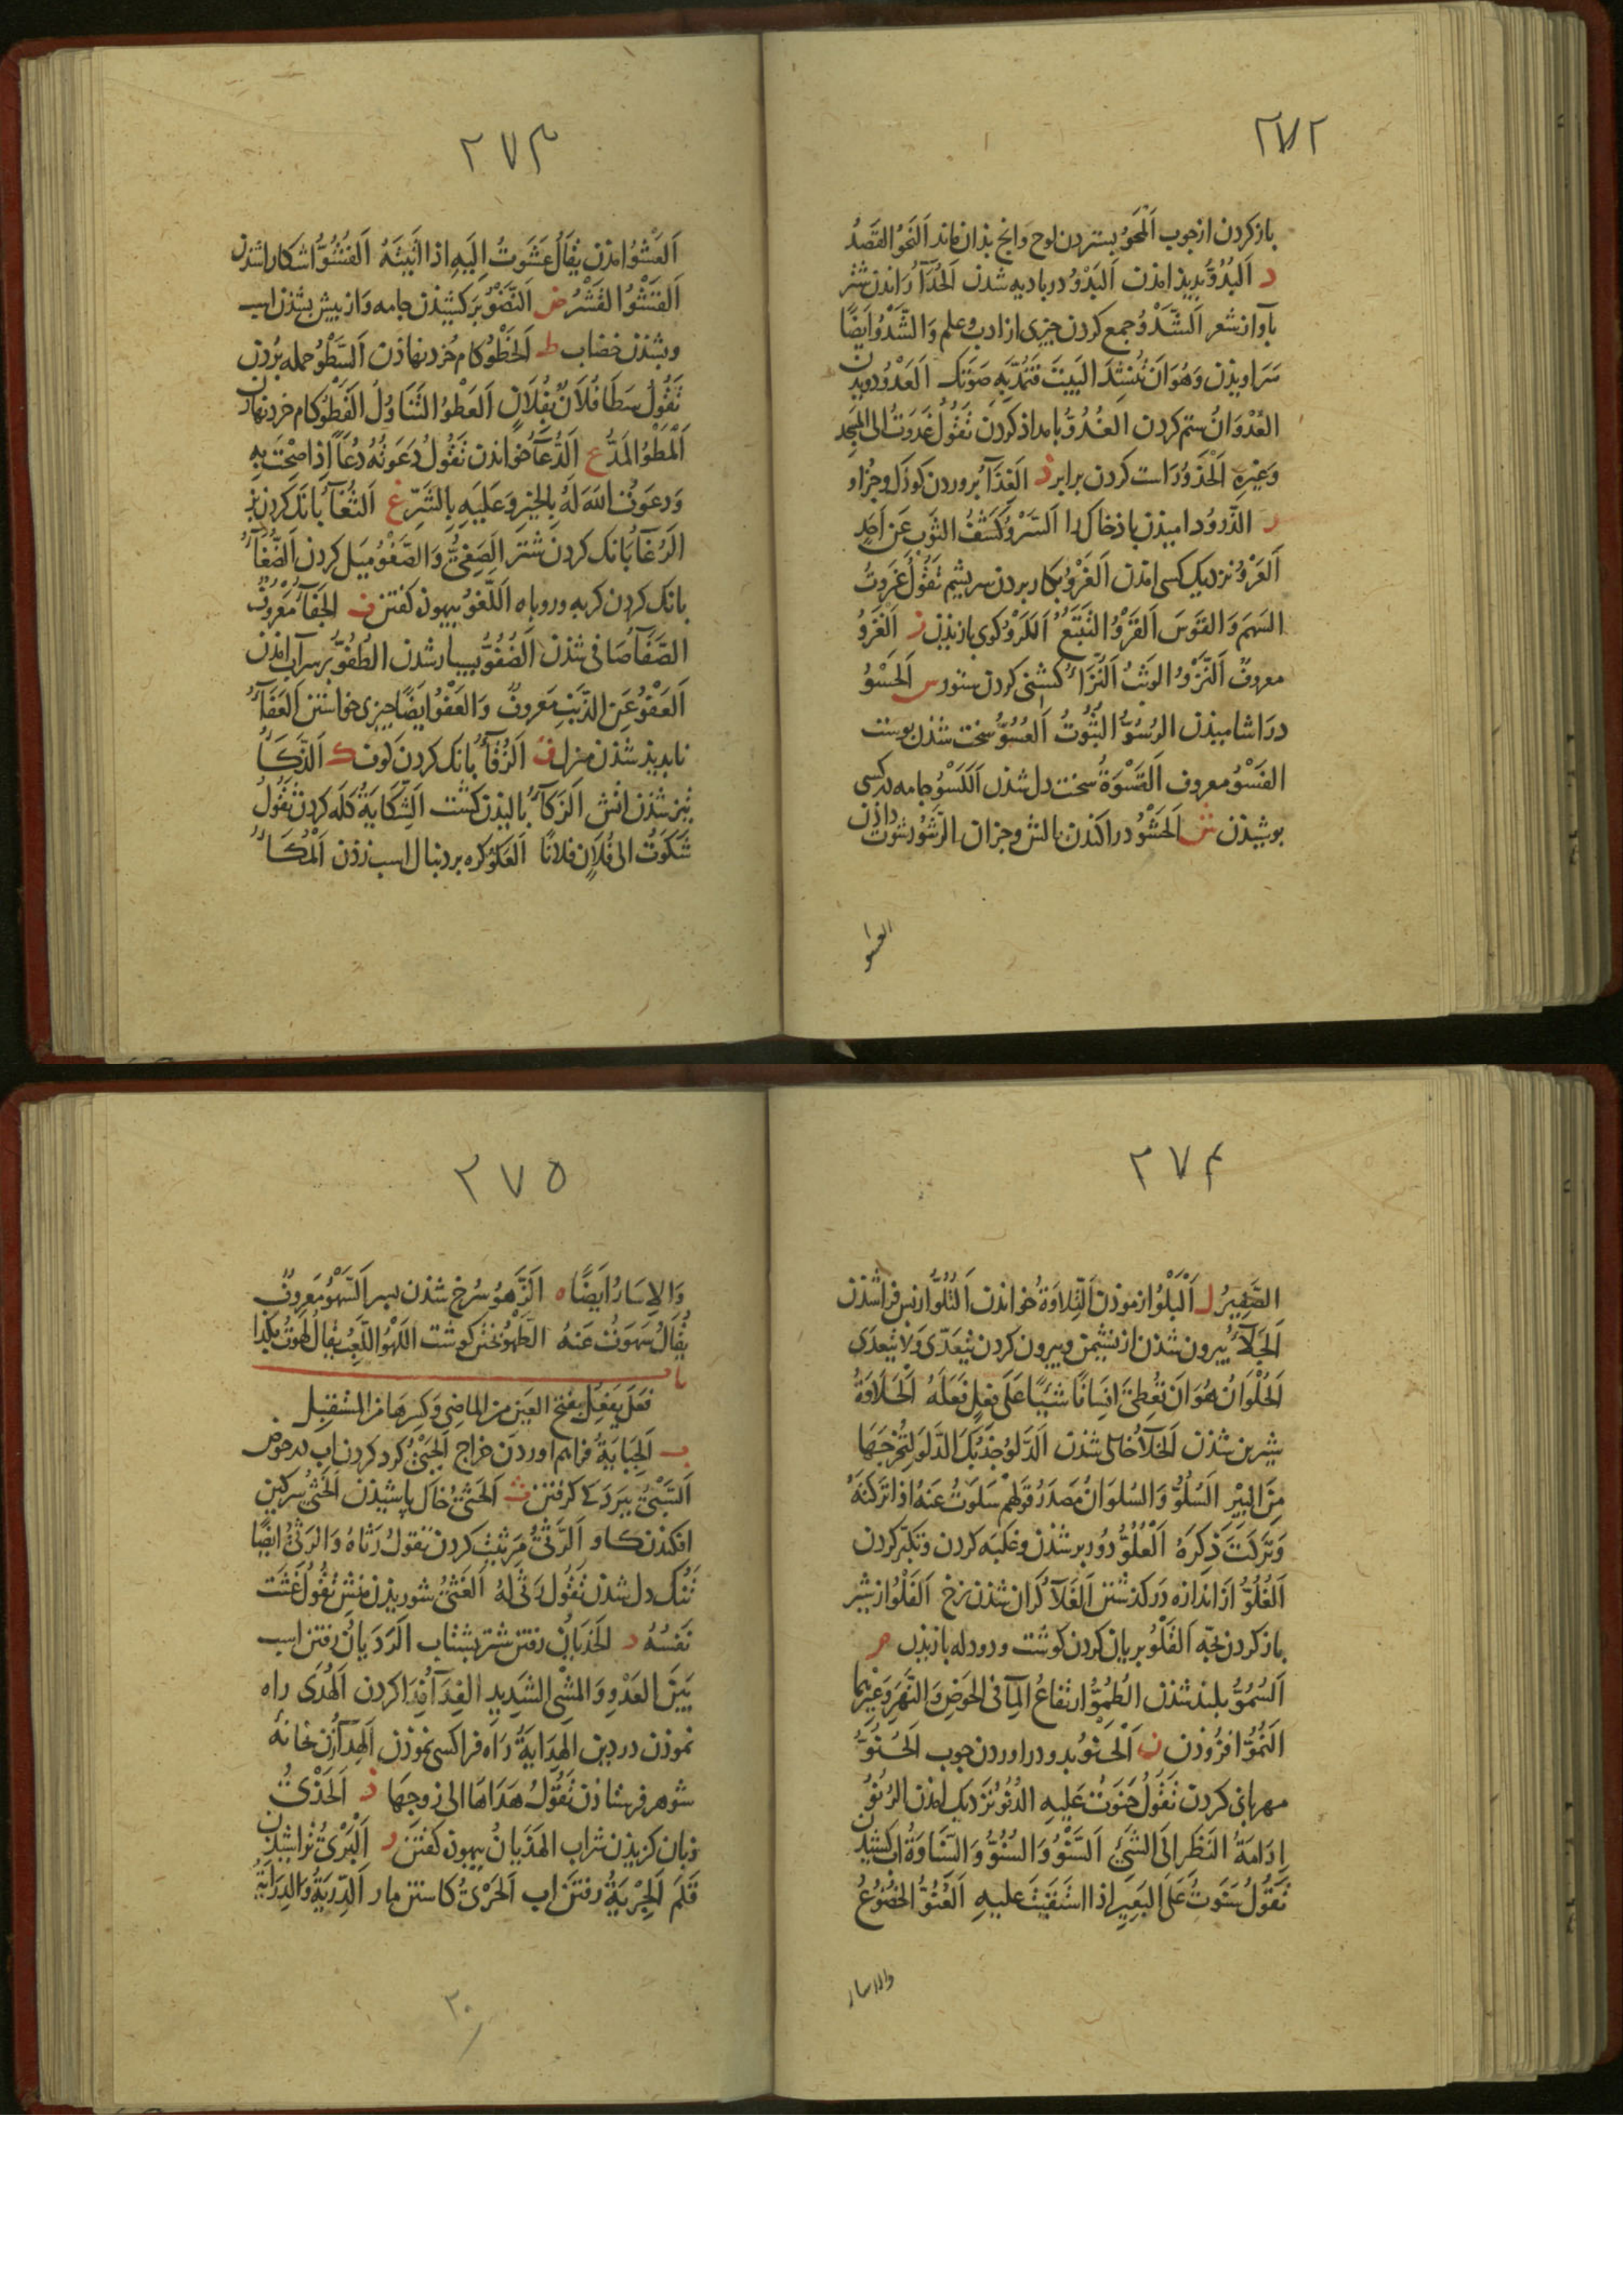 ٢٧٢
باز کردن از جوب اَلمَحوُ بستردن لوح وانج بذان ماند اَلنَحوُ القَصدُ
د اَلبُدُوُّ بدیذ امذن اَلبَدْوُ در بادیه شدن اَلحُدَآءُ راندن شتر
بآواز شعر اَلشَّدْوُ جمع کردن جیزی از ادب وعلم وَالشَّدْوُ اَیضًا
سَراویذن وَهُوَ اَنْ تُنشِدَ البَیتَ فَتَمُدَّ بِهِ صَوتَکَ اَلعَدْوُ دویدن
العُدْوَانُ ستم کردن الغُدُوُّ بامداذ کردن تَقُولُ غَدَوتُ الی المسجد
وَغَیرِهِ اَلْحَذْوُ رَاست کردن برابر ذ اَلغِذَآءُ بروردن کوذک وجزاو
ر الذَّرْوُ دامیذن باذ خاک را اَلسَّرْوُ کَشْفُ الثَوبِ عَن اَحَدٍ
اَلعَرْوُ نزدیک کسی امذن اَلغَرْوُ بکار بردن سریشم تَقُولُ غَرَوتُ
السَهمَ وَالقَوسَ اَلقَرْوُ التَتَبُّعُ اَلکَرْوُ کوی بازیذن ز اَلغَزْوُ
معروفٌ اَلنَّزْوُ الوَثْبُ اَلنَّزَاءُ کشنی کردن ستور س اَلحَسْوُ
درآشامیذن الرُسُوُّ الثُبُوتُ اَلعُسُوُّ سخت شذن بوست
الفَسْوُ معروف اَلقَسْوَةُ سخت دل شذن اَلکَسْوُ جامه در کسی
بوشیذن ش اَلحَشْوُ دراکندن بالش وجزان الرَشْوُ رشوت داذن
العشو
٢٧٣
اَلعَشْوُ امذن یُقَالُ عَشَوتُ اِلَیهِ اذا اَتَیتَهُ اَلفُشُوُّ اشکارا شذن
اَلقَشْوُ القَشْرُ ض اَلنَّضْوُ برکشیذن جامه وَاز بیش بشذن اسب
وبشذن خضاب ط اَلخَطْوُ کام خرد نهاذن اَلسَّطْوُ حمله بُردن
تَقُولُ سَطَا فُلَانٌ بِفُلَانٍ اَلعَطْوُ التَّنَاوُلُ اَلقَطْوُ کام خرد نهاذن
اَلْمَطْوُ المَدُّ ع اَلدُّعَآءُ خواندن تَقُولُ دَعَوتُهُ دُعَاءً اِذَا صِحْتَ بِهِ
وَدعَوتُ اللّٰهَ لَهُ بِالخَیرِ وَعَلَیهِ بِالشَرِّ غ اَلثُغَآءُ بانَک کردن بز
الرُغَآءُ بَانَک کردن شتر اَلصَغِیُّ وَالصَّغْوُ میَل کردن اَلضُغَآءُ
بانک کردن کربه وروباه اَللَّغْوُ بیهوذه کفتن ف اَلجَفَآءُ مَعرُوفٌ
الصَّفَآءُ صَافی شذن اَلضُفُوُّ بسیار شدن الطُفُوُّ بر سر آب امذن
اَلعَفْوُ عَنِ الذَّنبِ مَعروفٌ وَالعَفْوُ ایضًا جیزی خواستن اَلعَفَآءُ
نابدیذ شذن منزل ق اَلزُقَآءُ بانک کردن کوف ک اَلذَّکَآءُ
تیز شذن اتش اَلزَکَآءُ بالیذن کشت اَلشِّکَایَةُ کله کردن تَقُولُ
شَکَوتُ الی فُلَانٍ فلانًا اَلعَکْوُ کره بر دنبال اسب زذن اَلْمُکَآءُ
٢٧۴
الصَّفِیرُ ل اَلْبَلْوُ ازموذن اَلتِّلَاوَةُ خواندن اَلتُّلُوُّ از بس فرا شذن
اَلجَلَآءُ بیرون شذن از نشیمن وبیرون کردن یَتَعَدّی وَلا یَتَعدّی
اَلحُلْوَانُ هُوَ اَنْ تُعْطِیَ اِنْسَانًا شَیئًا عَلَی فِعْلٍ فَعَلَهُ اَلْحَلَاوَةُ
شیرین شذن اَلخَلَآءُ خالی شذن اَلدَّلوُ جَذْبُکَ الدَّلْوَ لِتُخْرِجَهَا
مِنَ البِیْرِ اَلسُلُوُّ وَالسُلوَانُ مَصدَرُ قَولِهِمْ سَلَوتُ عَنهُ اِذَا تَرَکتَهُ
وَتَرَکتَ ذِکرَهُ اَلْعُلُوُّ دُور برشذن وغلبَه کردن وتکبّر کردن
اَلغُلُوُّ اَز اندازه دَر کذشتن اَلغَلَآءُ کران شذن نرخ اَلفَلْوُ از شیر
باز کردن بچّه اَلقَلْوُ بریان کردن کوشت ودودله بازیذن م
اَلسُمُوُّ بلند شذن اَلطُمُوُّ ارتفاعُ المآءِ فی الحَوضِ وَالنَّهَرِ وَغَیرِهِما
اَلنُمُوُّ افزُوذن ن اَلْحَنْوُ بدو دراوردن جوب اَلحُنُوُّ
مهربانی کردن تَقُولُ حَنَوتُ عَلَیهِ الدُنُوُّ نَزدیک امذن الرُنُوُّ
اِدَامَةُ النَظَرِ اِلَی الشَیْءِ اَلسَّنْوُ وَالسُنُوُّ وَالسِّنَاوَةُ اب کشیذن
تَقُولُ سَنَوتُ عَلَی البَعِیرِ اِذَا استَقَیتَ عَلَیهِ اَلعُنُوُّ الخُضُوعُ
والاسار
٢٧٥
وَالاِسَارُ اَیضًا ه اَلزَّهْوُ سُرخ شذن بسر اَلسَّهْوُ مَعروفٌ
یُقَالُ سَهَوتُ عَنهُ الطَّهْوُ بختن کوشت اَللَّهْوُ اللَّعِبُ یُقَالُ لَهَوتُ بِکَذَا
باب
فَعَلَ یَفعِلُ بِفَتح العَینِ مِنَ الماضِی وَکَسرِهَا مِنَ المُسْتَقبِل
ب اَلجِبَایَةُ فراهم اوردن خراج اَلجَبْیُ کرد کردن اب در حوض
اَلسَّبْیُ ببردکی کرفتن ث اَلحَثْیُ خاک باشیذن اَلخَثْیُ سرکین
افکندن کاو اَلرَّثْیُ مَرثیَت کردن تَقُولُ رَثَاهُ وَالرَثْیُ ایضًا
تُنُک دل شدن تَقُولُ رَثَی لَهُ اَلغَثْیُ شوریذن مَنِش تَقُولُ غَثَت
نَفسُهُ د الخَدَیَانُ رفتن شتر بشتاب اَلرَّدَیَانُ رفتن اسب
بَینَ العَدْوِ وَالمَشْیِ الشَدِیدِ اَلفِدَآءُ فِدَا کردن اَلهُدَی راه
نموذن در دین اَلهِدَایَةُ رَاه فرا کسی نموذن اَلهِدَآءُ زن بخانهٔ
شوهر فرستاذن تَقُولُ هَدَاهَا الی زوجِهَا ذ اَلحَذْیُ
زبان کزیذن شراب الهَذَیَانُ بیهوذه کفتن ر اَلْبَرْیُ تراشیذن
قَلَم اَلجِرْیَةُ رفتن اب اَلحَرْیُ کاستن مار اَلدِّرْیَةُ وَالدِرَایَةُ
٣٠